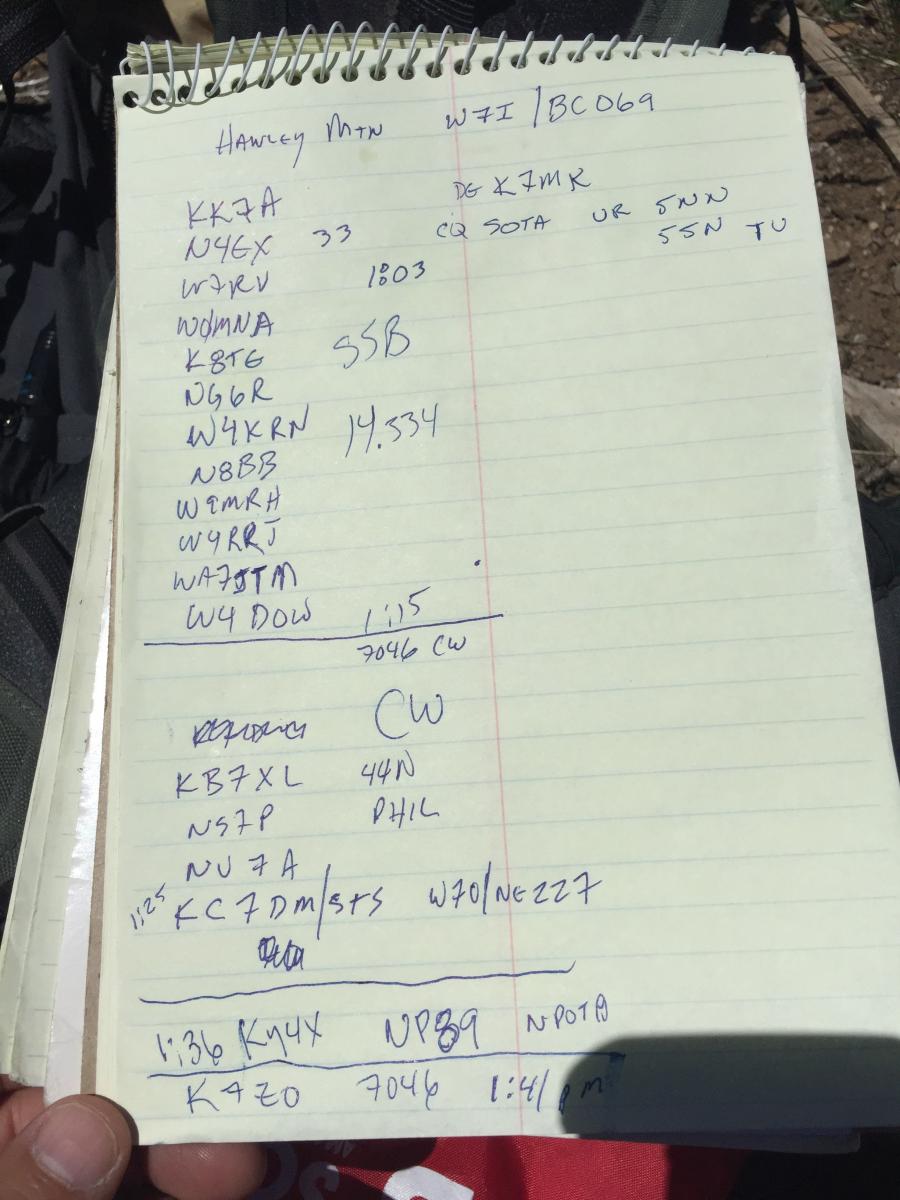 HAWLEY MTN W7I/BC069
DE K7MK
KK7A
N4EX 33 CQ SOTA UR 5NN
55N TU
W7RV 1:03
WØMNA
K8TE SSB
NG6R
W4KRN 14.334
N8BB
W9MRH
W4RRJ
WA7JTM
W4DOW 1:15
7046 CW
CW
KB7XL 44N
NS7P PHIL
NU7A
1:25 KC7DM/STS W7O/NE227
1:36 KY4X NP89 NPOTA
K7ZO 7046 1:41 pm